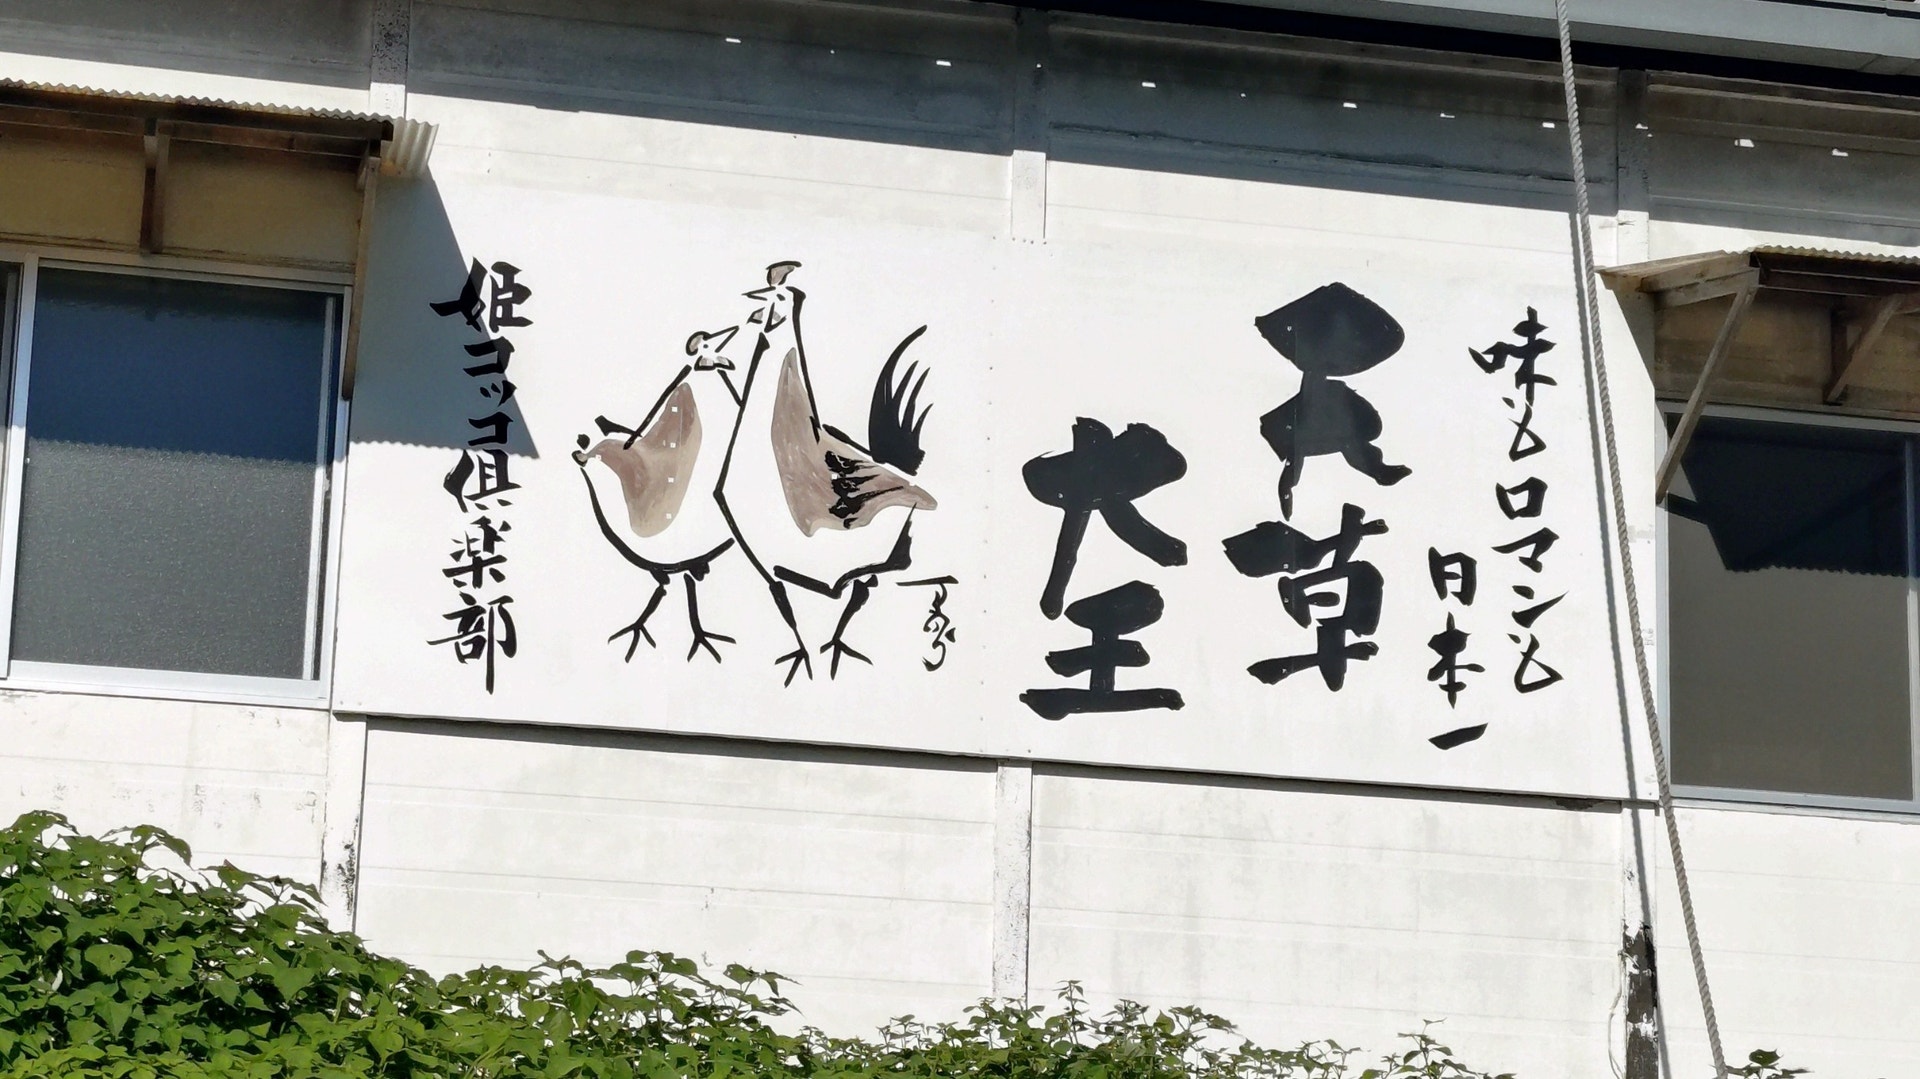 味もロマンも
日本一
天草
大王
姫コッコ倶楽部